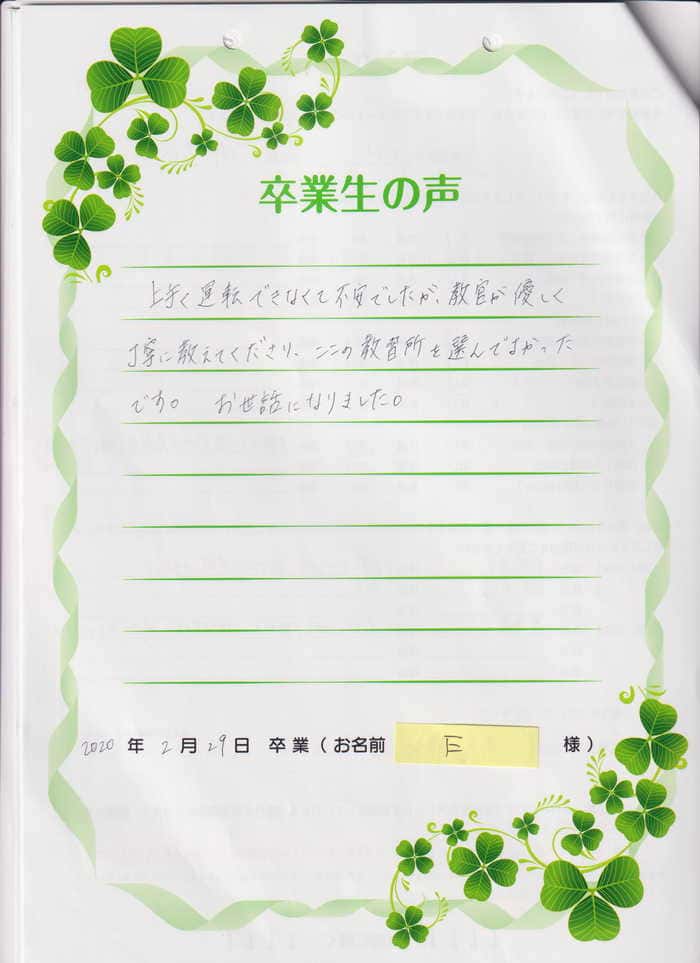 卒業生の声
上手く運転できなくて不安でしたが、教官が優しく
丁寧に教えてくださり、ここの教習所を選んでよかった
です。 お世話になりました。
2020 年 2 月 29 日 卒業(お名前 E 様)